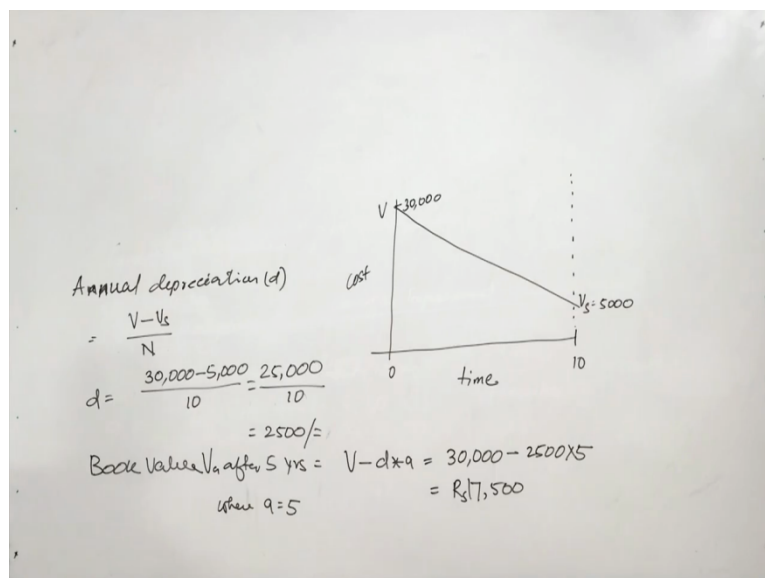 V 30,000
cost
Vs = 5000
0 time 10
Annual depreciation (d)
= V-Vs / N
d = 30,000-5,000 / 10 = 25,000 / 10
= 2500/=
Book value Va after 5 yrs = V-d*a = 30,000 - 2500X5
where a=5 = Rs17,500